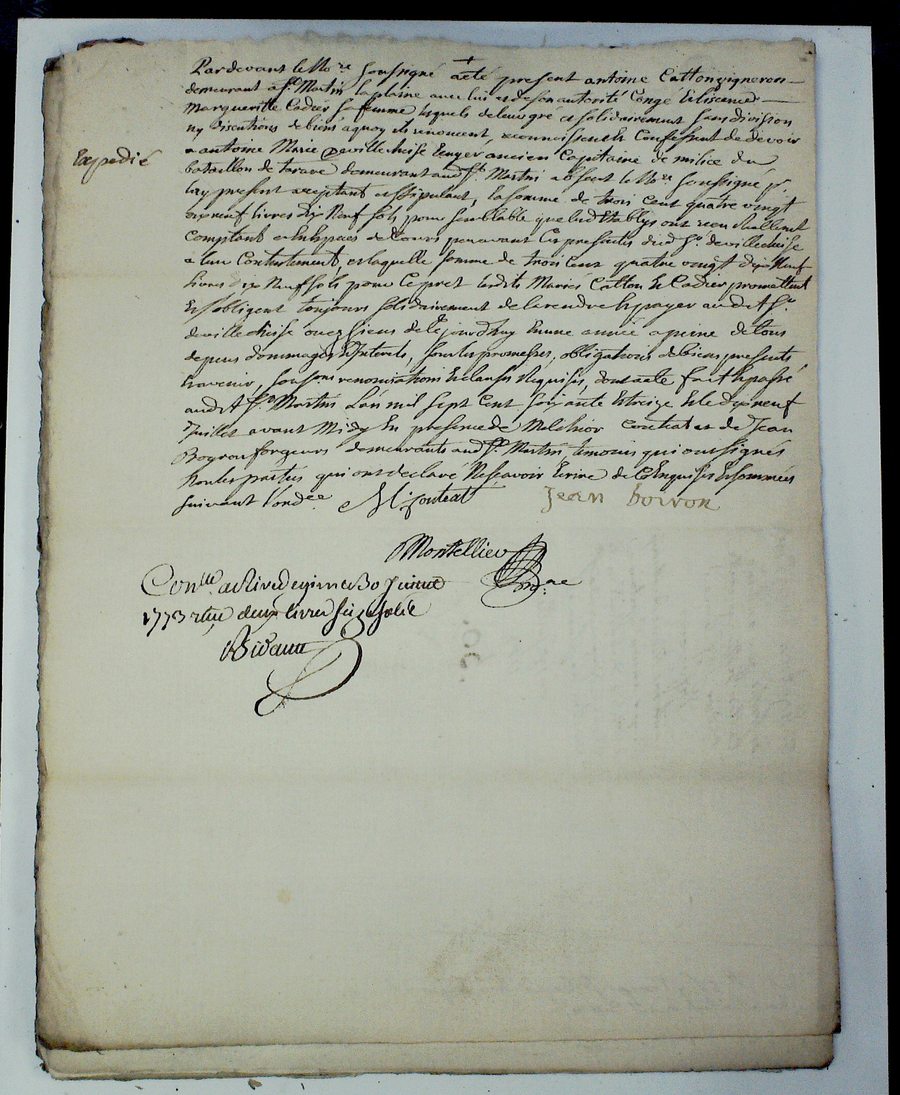 Pardevant le No.re soussigné a été present antoine Catton vigneron
demeurant a St. Martin la plaine avec lui et de son autorité Congé & licence
Margueritte Cadier sa femme lesquels de leur gre et solidairement sans division
ny discutions de biens a quoy ils renoncent reconnoissent & Confessent de devoir
a antoine Marie deville ancien Capitaine de milice du
Expedié
bataillon de tarare demeurant aud. St. Martin absent le No.re soussigné p.r
luy present acceptant et stipulant, la somme de trois Cent quatre vingt
dixneuf livres dix Neuf sols, pour semblable que lesd. Establys ont reçu reellement
Comptant en Especes de Cours paravant Ces presentes dud. Sr. deville
a leur Contentement, et laquelle somme de trois Cent quatre vingt dix Neuf
livres dix Neuf sols pour Ce pret lesdits Maries Catton & Cadier, promettent
& s'obligent toujours solidairement de la rendre & payer audit Sr.
deville ou ez siens de Ce jourd'huy En une année a peine de tous
depens dommages & Interets, sous les promesses, obligations de biens presents
& avenir, sousmons renonciations & clauses Requises, dont acte fait & passé
audit St. Martin L'an mil sept Cent soixante & treize & le dix neuf
Juillet avant Midy En presence de Melchior Contrat et de Jean
Boyron forgeurs demeurants aud. St. Martin, temoins qui ont signés
Non les parties qui ont declaré Ne sçavoir Ecrire de Ce Enquises & sommées
suivant l'ord.ce M. Contrat Jean boiron
Montellier
N.re
Con.lle a Rivedegier le 30 Juillet
1773 reçu deux livres seize sols